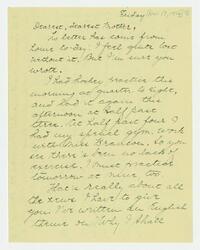 Friday
Dearest, Dearest Mother,
No letter has come from
home to-day. I feel quite lost
without it. But I'm sure you
wrote.
I had hockey practice this
morning at quarter to eight,
and had it again this
afternoon at half past
three. At half past four I
had my special gym. work
with Miss Branson. So you
see there's been no lack of
exercise. I must practice
tomorrow at nine too.
That is really about all
the news I have to give
you. I've written my English
theme on "Why I